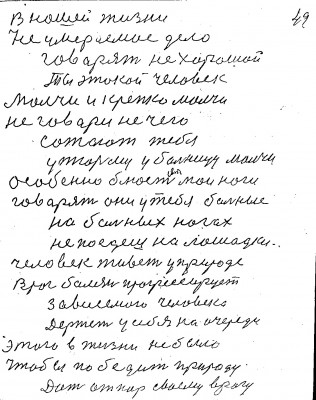 49
В нашей жизни
Не умераемое дело
говарят не хорошой
Ты этокой человек
Молчи и крепко молчи
не говари не чего
сотают тебя
у торму у балницу молчи
особенно блюст мои ноги
говарят они у тебя балные
на балных ногах
не поедеш на лошадки..
человек живет у природе
Враг балям прогресирует
Зависемого человека
Держет у себя на очереди
Этого в жизни небыло
Чтобы победит природу
Дат отпор своему врагу